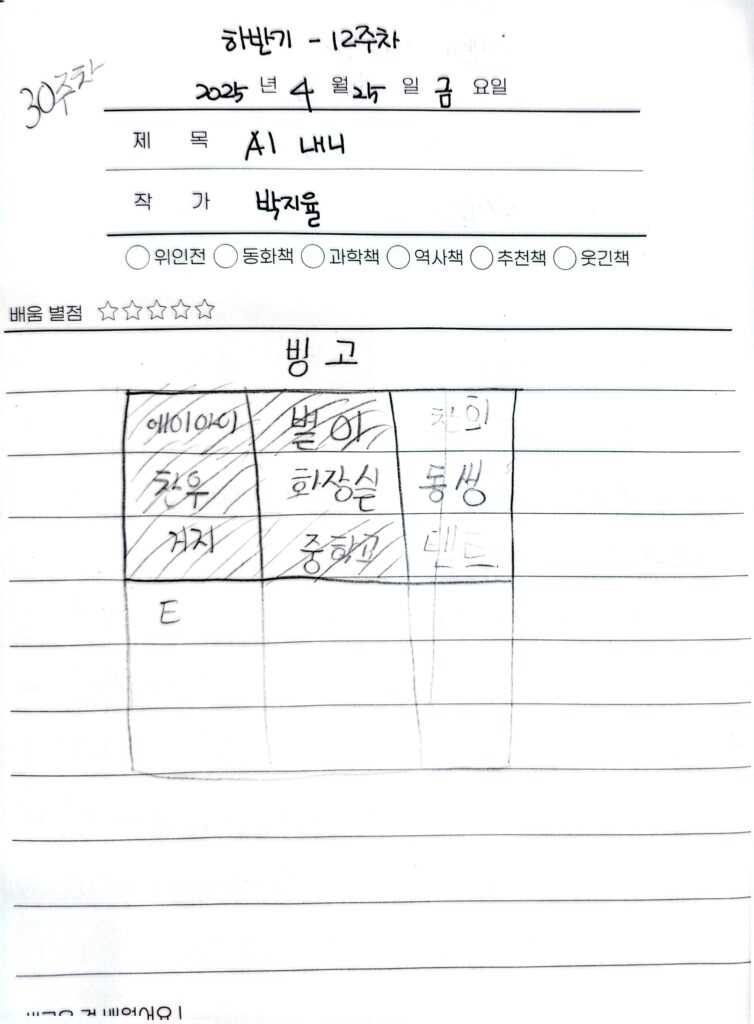 하반기 - 12주차
30주차
2025 년 4 월 25 일 금 요일
제 목 AI 내니
작 가 박지율
위인전 동화책 과학책 역사책 추천책 웃긴책
배움 별점 ☆☆☆☆☆
빙고
에이아이 별이 찬희
찬우 화장실 동생
거지 중학교 텐트
E